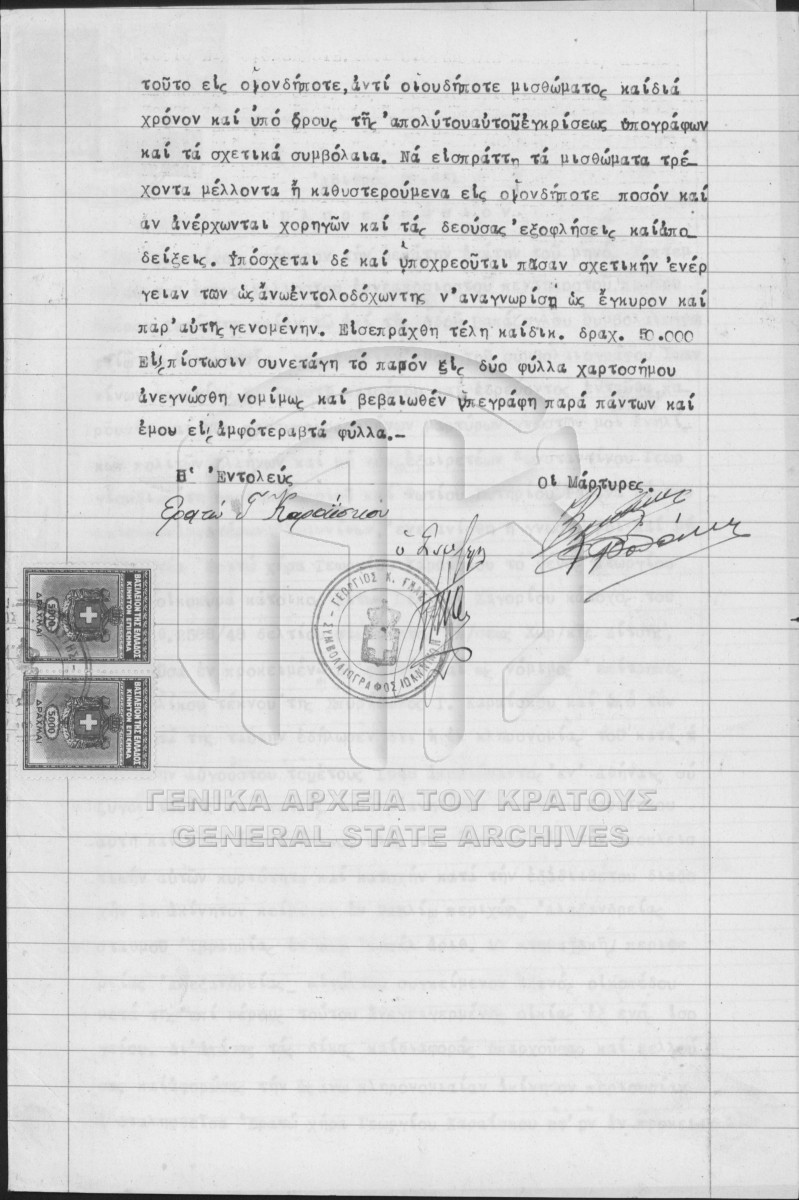 τοῦτο εἰς οἱονδήποτε, ἀντί οἱουδήποτε μισθώματος καίδιά
χρόνον καί ὑπό ὅρους τῆς ἀπολύτουαὐτοῦἐγκρίσεως ὑπογράφων
καί τά σχετικά συμβόλαια. Νά εἰσπράττη τά μισθώματα τρέ-
χοντα μέλλοντα ἤ καθυστερούμενα εἰς οἱονδήποτε ποσόν καί
αν ἀνέρχωνται χορηγῶν καί τάς δεούσας ἐξοφλήσεις καίαπο_
δείξεις. Ὑπόσχεται δέ καί ὑποχρεοῦται πᾶσαν σχετικήν ἐνέρ
γειαν των ὡς ἄνωἐντολοδόχωντης ν'ἀναγνωρίση ὡς ἔγκυρον καί
παρ'αὐτῆς γενομένην. Εἰσεπράχθη τέλη καίδικ. δραχ. 50.000
Εἰς πίστωσιν συνετάγη τό παρόν εἰς δύο φύλλα χαρτοσήμου
ἀνεγνώσθη νομίμως καί βεβαιωθέν ὑπεγράφη παρά πάντων καί
ἐμου εἰς ἀμφότεραβτά φύλλα.-
Ἡ Ἐντολεύς
Οἱ Μάρτυρες.
Ερατώ Γ. Καραΐσκου
ὁ Συμβ/φος
ΓΕΩΡΓΙΟΣ Κ.
ΣΥΜΒΟΛΑΙΟΓΡΑΦΟΣ ΙΩΑΝΝΙΝΩΝ
ΒΑΣΙΛΕΙΟΝ ΤΗΣ ΕΛΛΑΔΟΣ
ΚΙΝΗΤΟΝ ΕΠΙΣΗΜΑ
5000
ΔΡΑΧΜΑΙ
ΒΑΣΙΛΕΙΟΝ ΤΗΣ ΕΛΛΑΔΟΣ
ΚΙΝΗΤΟΝ ΕΠΙΣΗΜΑ
5000
ΔΡΑΧΜΑΙ
ΓΕΝΙΚΑ ΑΡΧΕΙΑ ΤΟΥ ΚΡΑΤΟΥΣ
GENERAL STATE ARCHIVES